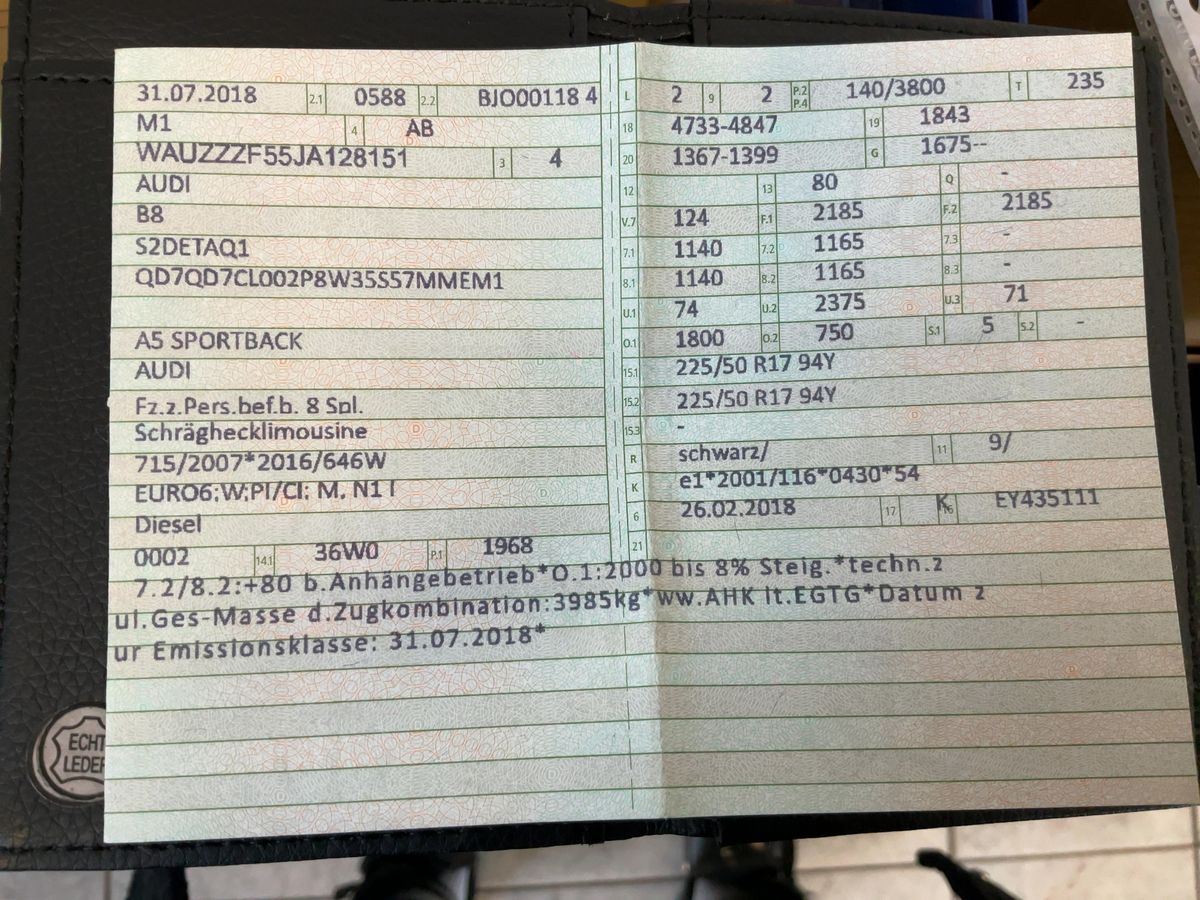 31.07.2018 2.1 0588 2.2 BJO00118 4 L 2 9 2 P.2 P.4 140/3800 T 235
M1 4 AB 18 4733-4847 19 1843
WAUZZZF55JA128151 3 4 20 1367-1399 G 1675--
AUDI 12 13 80 Q -
B8 V.7 124 F.1 2185 F.2 2185
S2DETAQ1 7.1 1140 7.2 1165 7.3 -
QD7QD7CL002P8W35S57MMEM1 8.1 1140 8.2 1165 8.3 -
U.1 74 U.2 2375 U.3 71
A5 SPORTBACK O.1 1800 O.2 750 S.1 5 S.2 -
AUDI 15.1 225/50 R17 94Y
Fz.z.Pers.bef.b. 8 Spl. 15.2 225/50 R17 94Y
Schräghecklimousine 15.3 -
715/2007*2016/646W R schwarz/ 11 9/
EURO6;W;PI/CI; M, N1 I K e1*2001/116*0430*54
Diesel 6 26.02.2018 17 K 16 EY435111
0002 14.1 36W0 P.1 1968 21
7.2/8.2:+80 b.Anhängebetrieb*O.1:2000 bis 8% Steig.*techn.z
ul.Ges-Masse d.Zugkombination:3985kg*ww.AHK lt.EGTG*Datum z
ur Emissionsklasse: 31.07.2018*
ECHT
LEDER